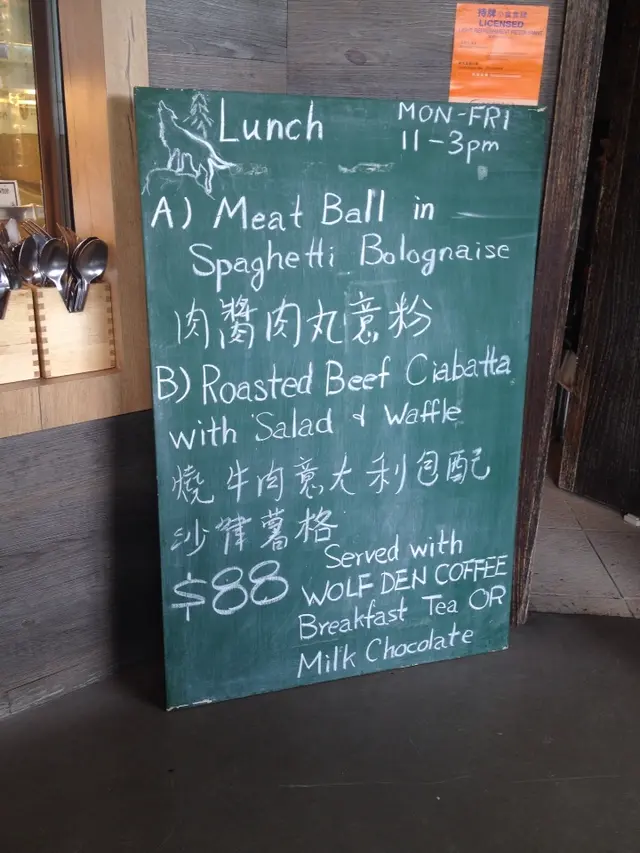 持牌小食食肆
LICENSED
LIGHT REFRESHMENT RESTAURANT
Lunch
MON-FRI
11-3pm
A) Meat Ball in
Spaghetti Bolognaise
肉醬肉丸意粉
B) Roasted Beef Ciabatta
with Salad & Waffle
燒牛肉意大利包配
沙律薯格
$88
Served with
WOLF DEN COFFEE
Breakfast Tea OR
Milk Chocolate